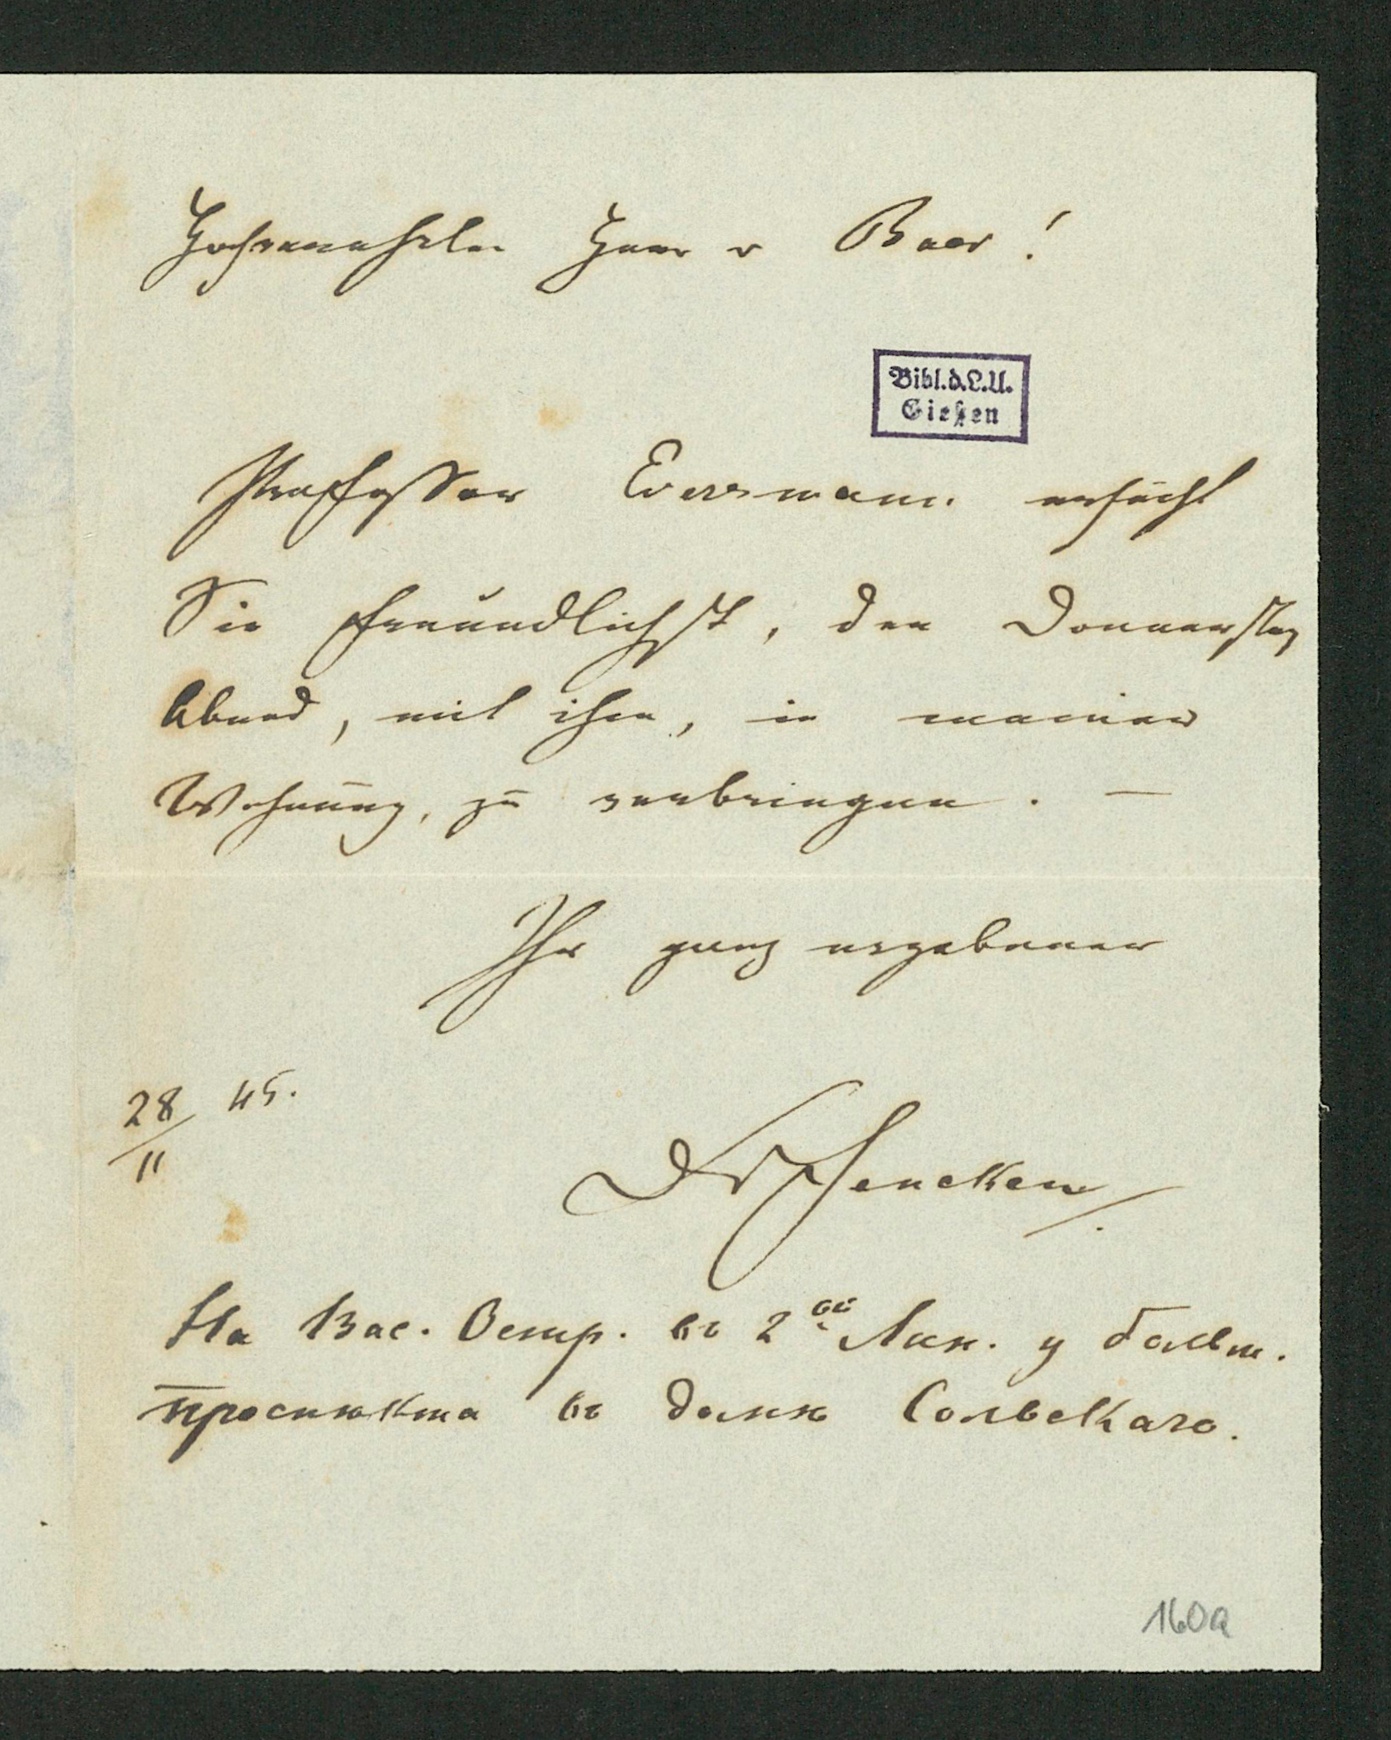 Hochverehrter Herr v Baer!
Bibl.d.L.U.
Gießen
Professor Eversmann ersucht
Sie freundlichst, den Donnerstag
Abend, mit ihm, in meiner
Wohnung, zu verbringen. —
Ihr ganz ergebener
28/11 45.
Dr Schencken
На Вас. Остр. въ 2ой Лин. у больш.
проспекта въ домѣ Сольскаго.
160a